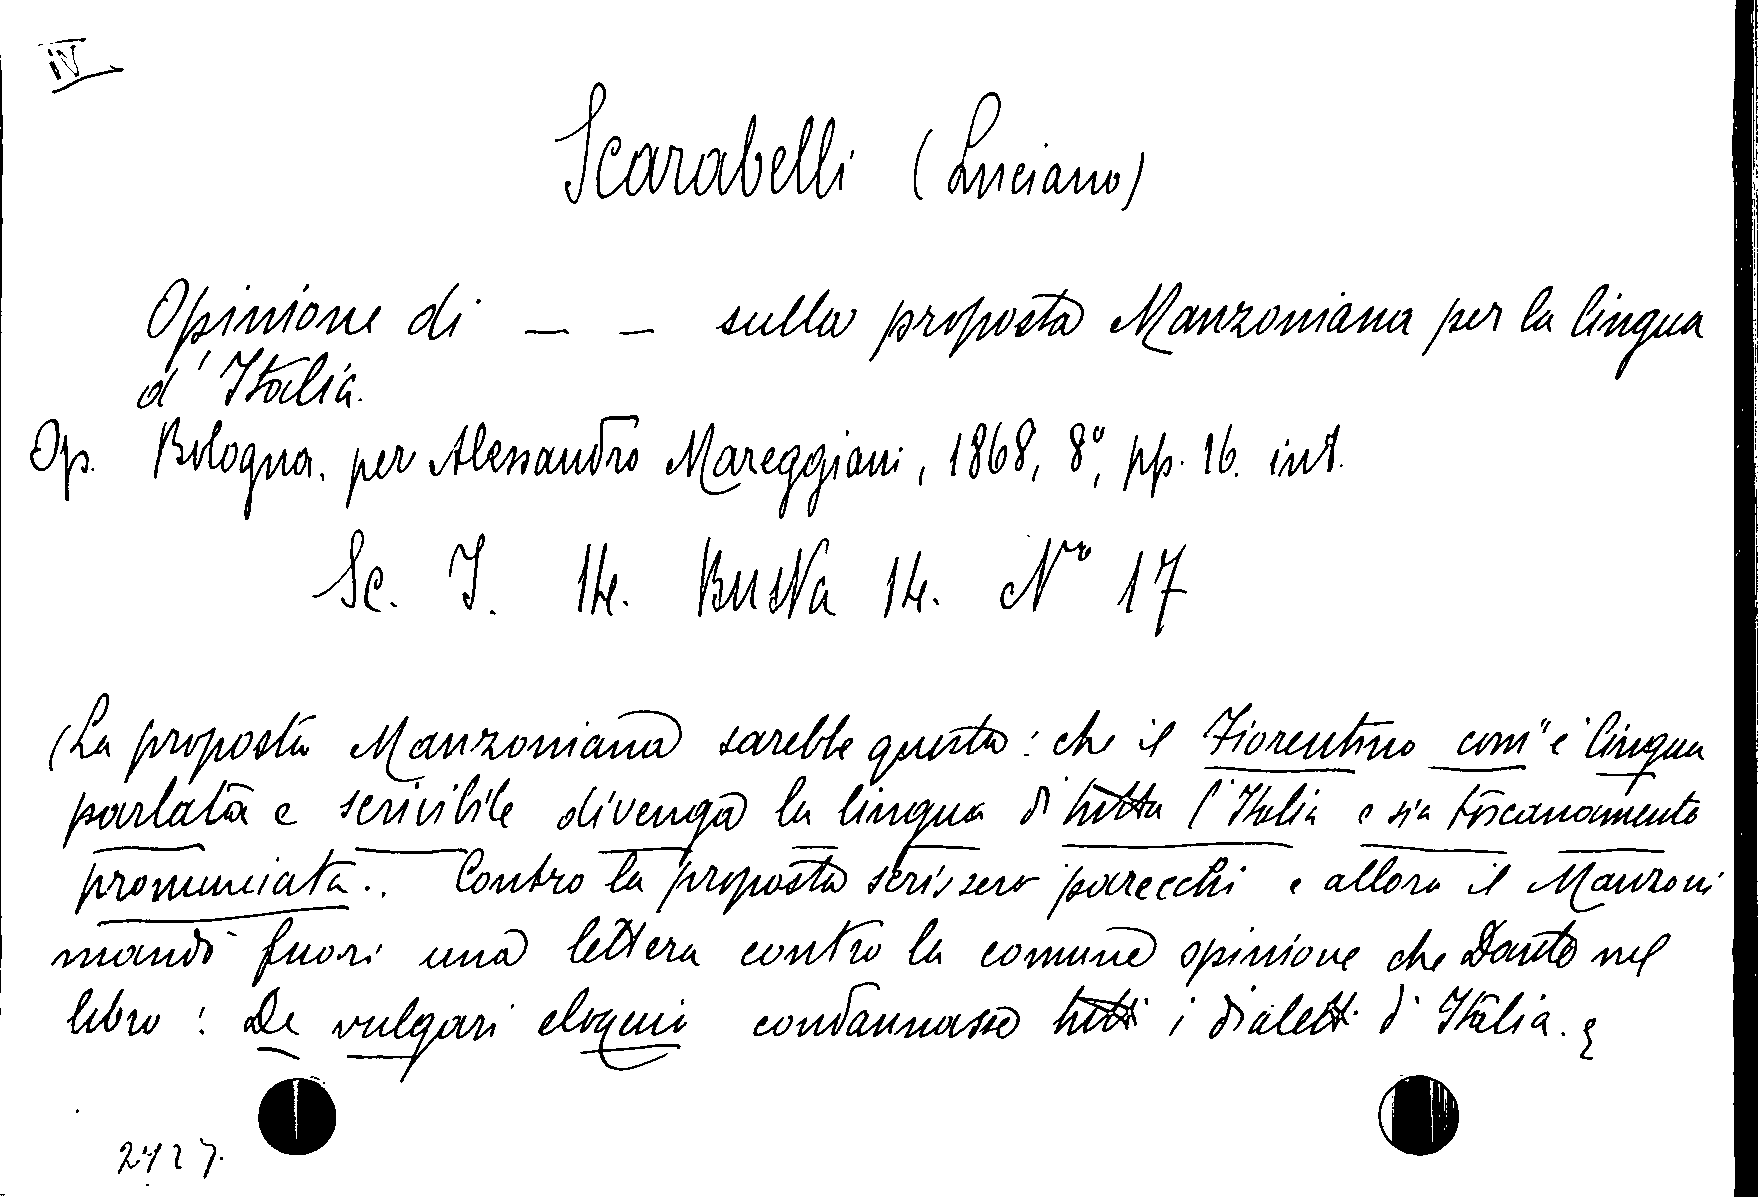 IV
Scarabelli (Luciano)
Opinione di — — sulla proposta Manzoniana per la lingua
d'Italia.
Op. Bologna. per Alessandro Mareggiani, 1868, 8°, pp. 16. int.
Sc. I. 14. Busta 14. N° 17
(La proposta Manzoniana sarebbe questa: che il Fiorentino com'è lingua
parlata e scrivibile divenga la lingua di tutta l'Italia e sia toscanamente
pronunciata.. Contro la proposta scrissero parecchi e allora il Manzoni
mandò fuori una lettera contro la comune opinione che Dante nel
libro: De vulgari eloquio condannasse tutti i dialetti d'Italia.
2427.